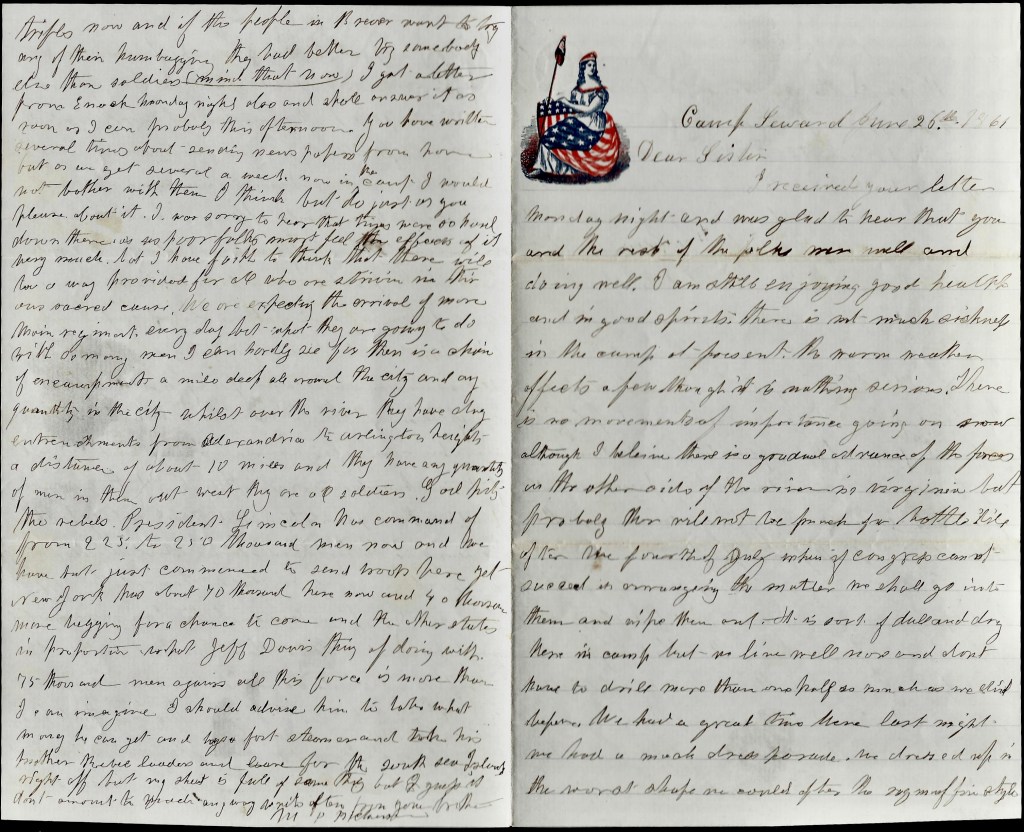 Camp Seward June 26th 1861
Dear Sister
I received your letter
Monday night and was glad to hear that you
and the rest of the folks were well and
doing well. I am still enjoying good health
and in good spirits. there is not much sickness
in the camp at present. the warm weather
affects a few though it is nothing serious. There
is no movements of importance going on now
although I beleive there is a gradual advance of the forces
on the other side of the river in Virginia but
probaly ther will not be much of a battle till
after the fourth of July when if congress cannot
succeed in arranging the matter we shall go into
them and wipe them out. It is sort of dull and dry
here in camp but we live well now and dont
have to drill more than one half as much as we did
before. We had a great time here last night
we had a mock dress parade. we dressed up in
the worst shape we could after the ragmuffin style
trifles now and if the people in B ever want to try
any of their humbugging they had better try somebody
else than soldiers (mind that now) I got a letter
from Enoch monday night also and shall answer it as
soon as I can probaly this afternoon. You have written
several times about sending news papers from home
but as we get several a week now in the camp I would
not bother with them I think but do just as you
please about it. I was sorry to hear that times were so hard
down there as us poor folks must feel the effects of it
very much. but I have faith to think that there will
be a way provided for all who are striving in this
our sacred cause. We are expecting the arrival of more
Main regiment every day but what they are going to do
with so many men I can hardly see for there is a chain
of encampments a mile deep all around the city and any
quantity in the city whilst over the river they have dug
entrenchments from Alexandria to arlington heights
a distance of about 10 miles and they have any quantity
of men in them out west they are all soldiers
the rebels. President Lincoln has command of
from 225 to 250 thousand men now and we
have but just commenced to send troops here yet
New York has about 70 thousand here now and 40 thousand
more begging for a chance to come and the other states
in proportion what Jeff Davis thing of doing with
75 thousand men against all this force is more than
I can imagine I should advise him to take what
money he can get and buy a fast steamer and take his
brother rebel leaders and leave for the south sea Islands
right off but my sheet is full of something but I guess it
dont amount to much anyway write often from your brother